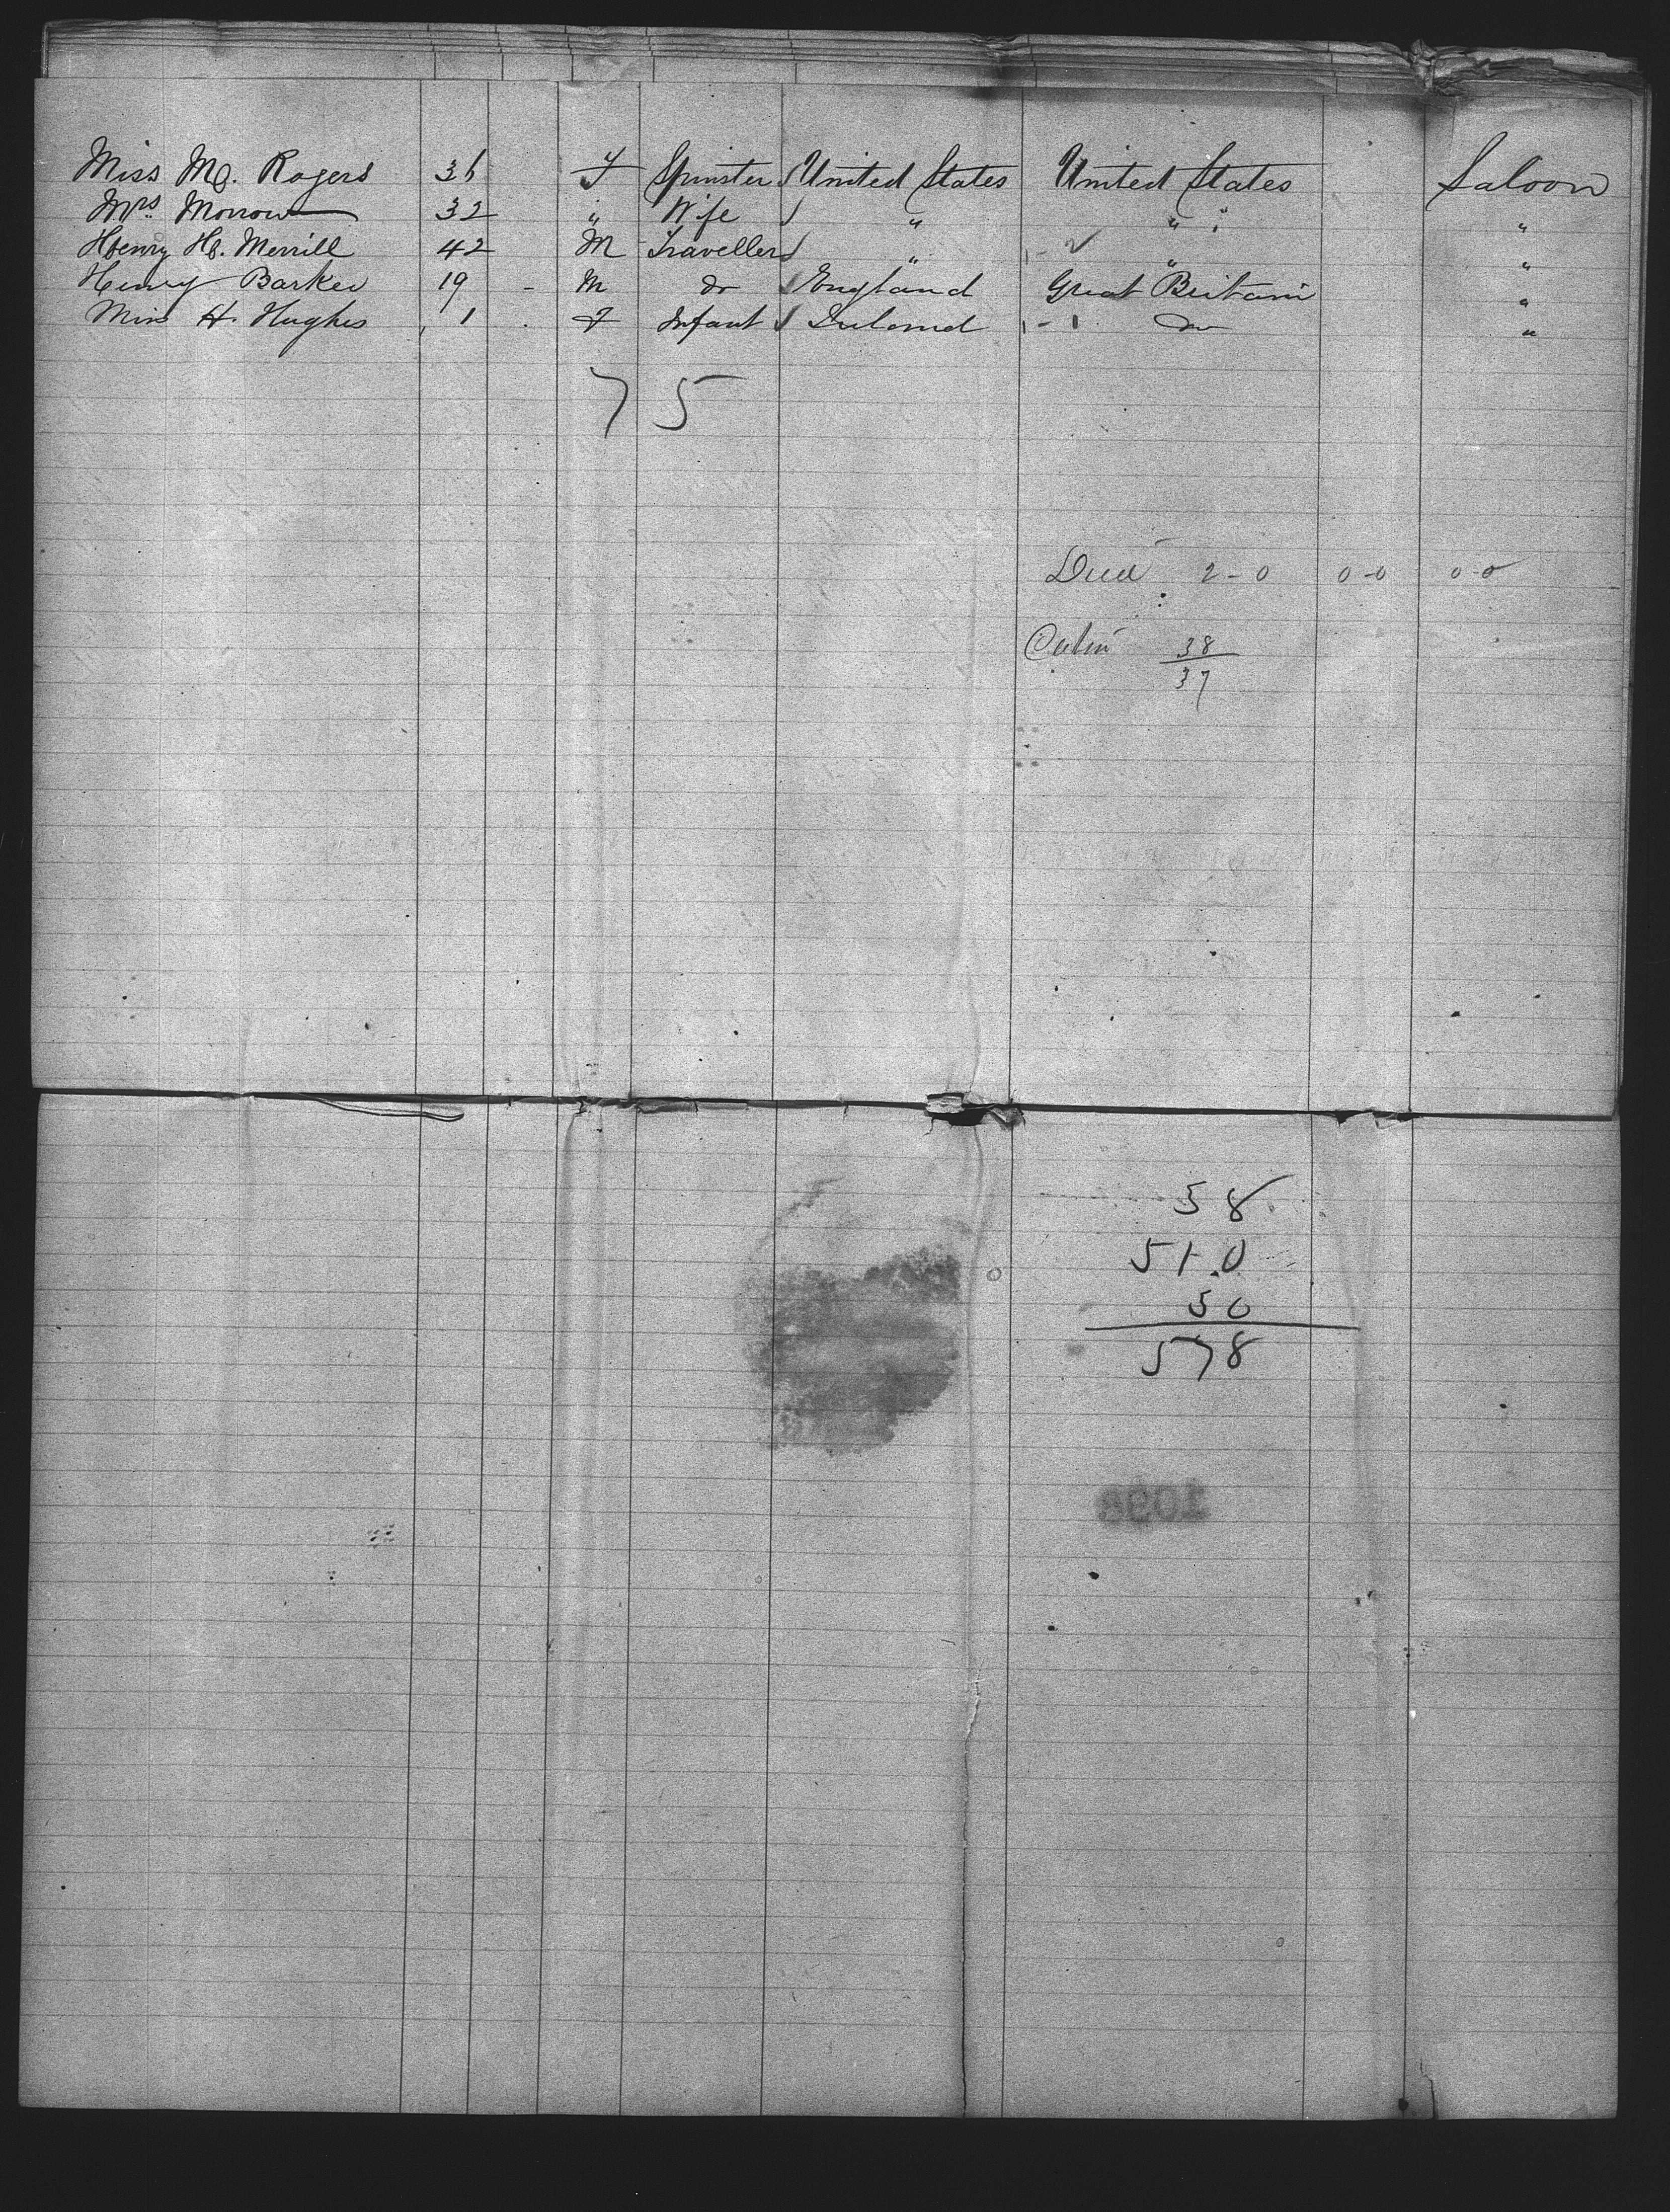 Miss M. Rogers 36 F Spinster United States United States Saloon
Mrs. Morrow 32 " Wife " " "
Henry H. Merrill 42 M Traveller " " "
Henry Barker 19 - M do England Great Britain "
Miss H. Hughes 1 F Infant Ireland 1 - 1 do "
75
Died 2-0 0-0 0-0
Cabin 38
37
58
510
50
578